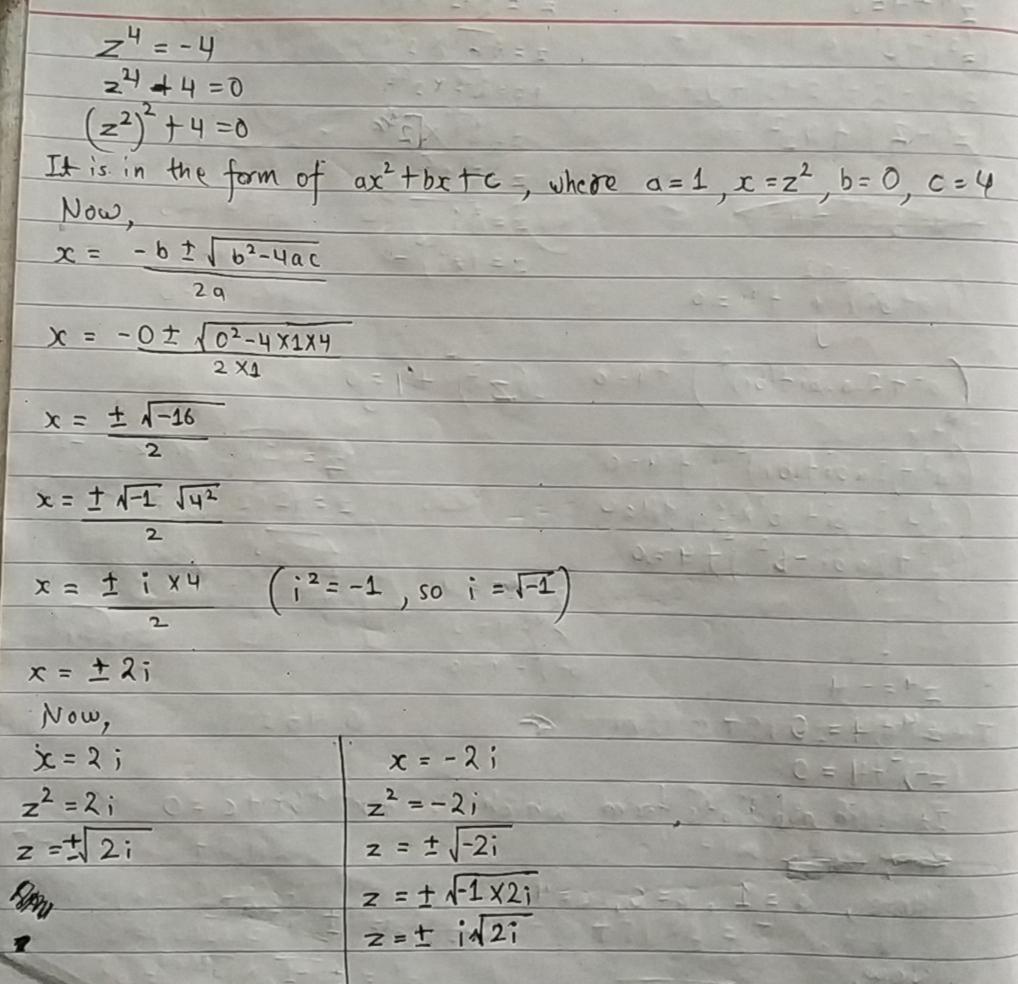 z⁴ = -4
z⁴ + 4 = 0
(z²)² + 4 = 0
It is in the form of ax² + bx + c =, where a = 1, x = z², b = 0, c = 4
Now,
x = (-b ± √(b² - 4ac)) / 2a
x = (-0 ± √(0² - 4×1×4)) / (2×1)
x = ± √-16 / 2
x = ± √-1 √4² / 2
x = ± i × 4 / 2 (i² = -1, so i = √-1)
x = ± 2i
Now,
x = 2i
z² = 2i
z = ±√2i
x = -2i
z² = -2i
z = ± √-2i
z = ± √-1×2i
z = ± i√2i